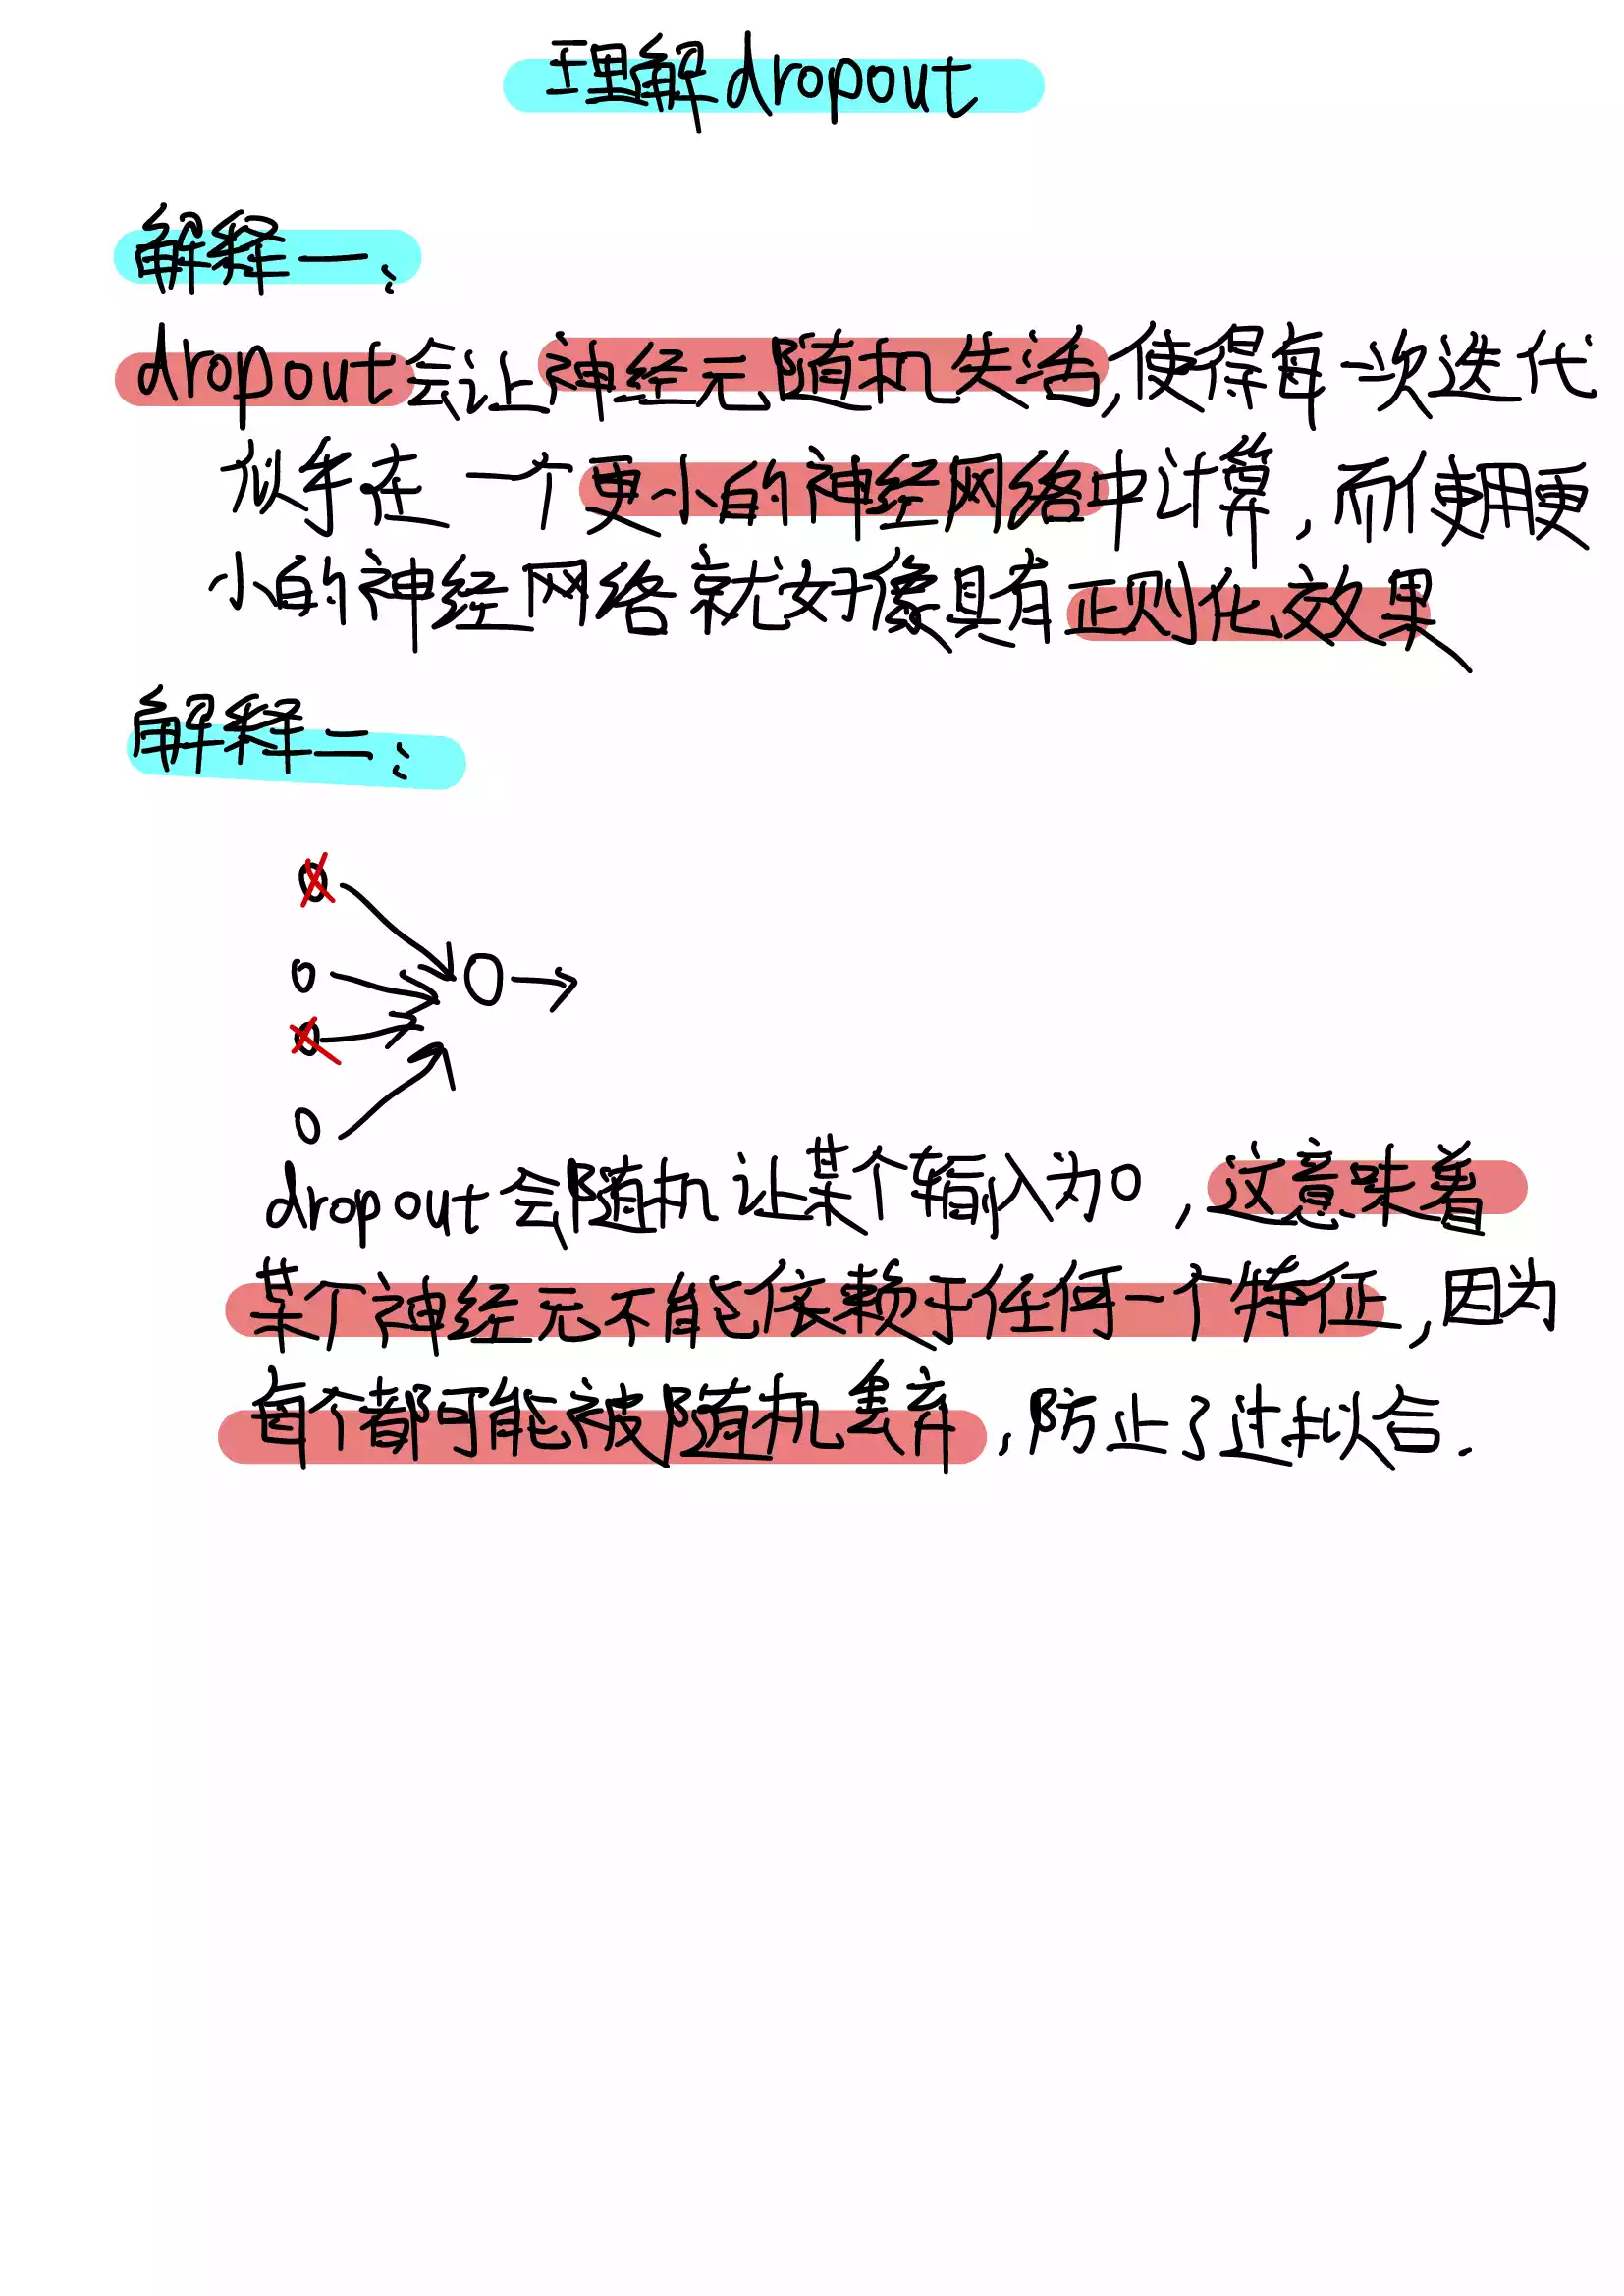 理解dropout
解释一:
dropout会让神经元随机失活,使得每一次迭代
似乎在一个更小的神经网络中计算,而使用更
小的神经网络就好像具有正则化效果
解释二:
dropout会随机让某个输入为0,这意味着
某个神经元不能依赖于任何一个特征,因为
每个都可能被随机丢弃,防止了过拟合.